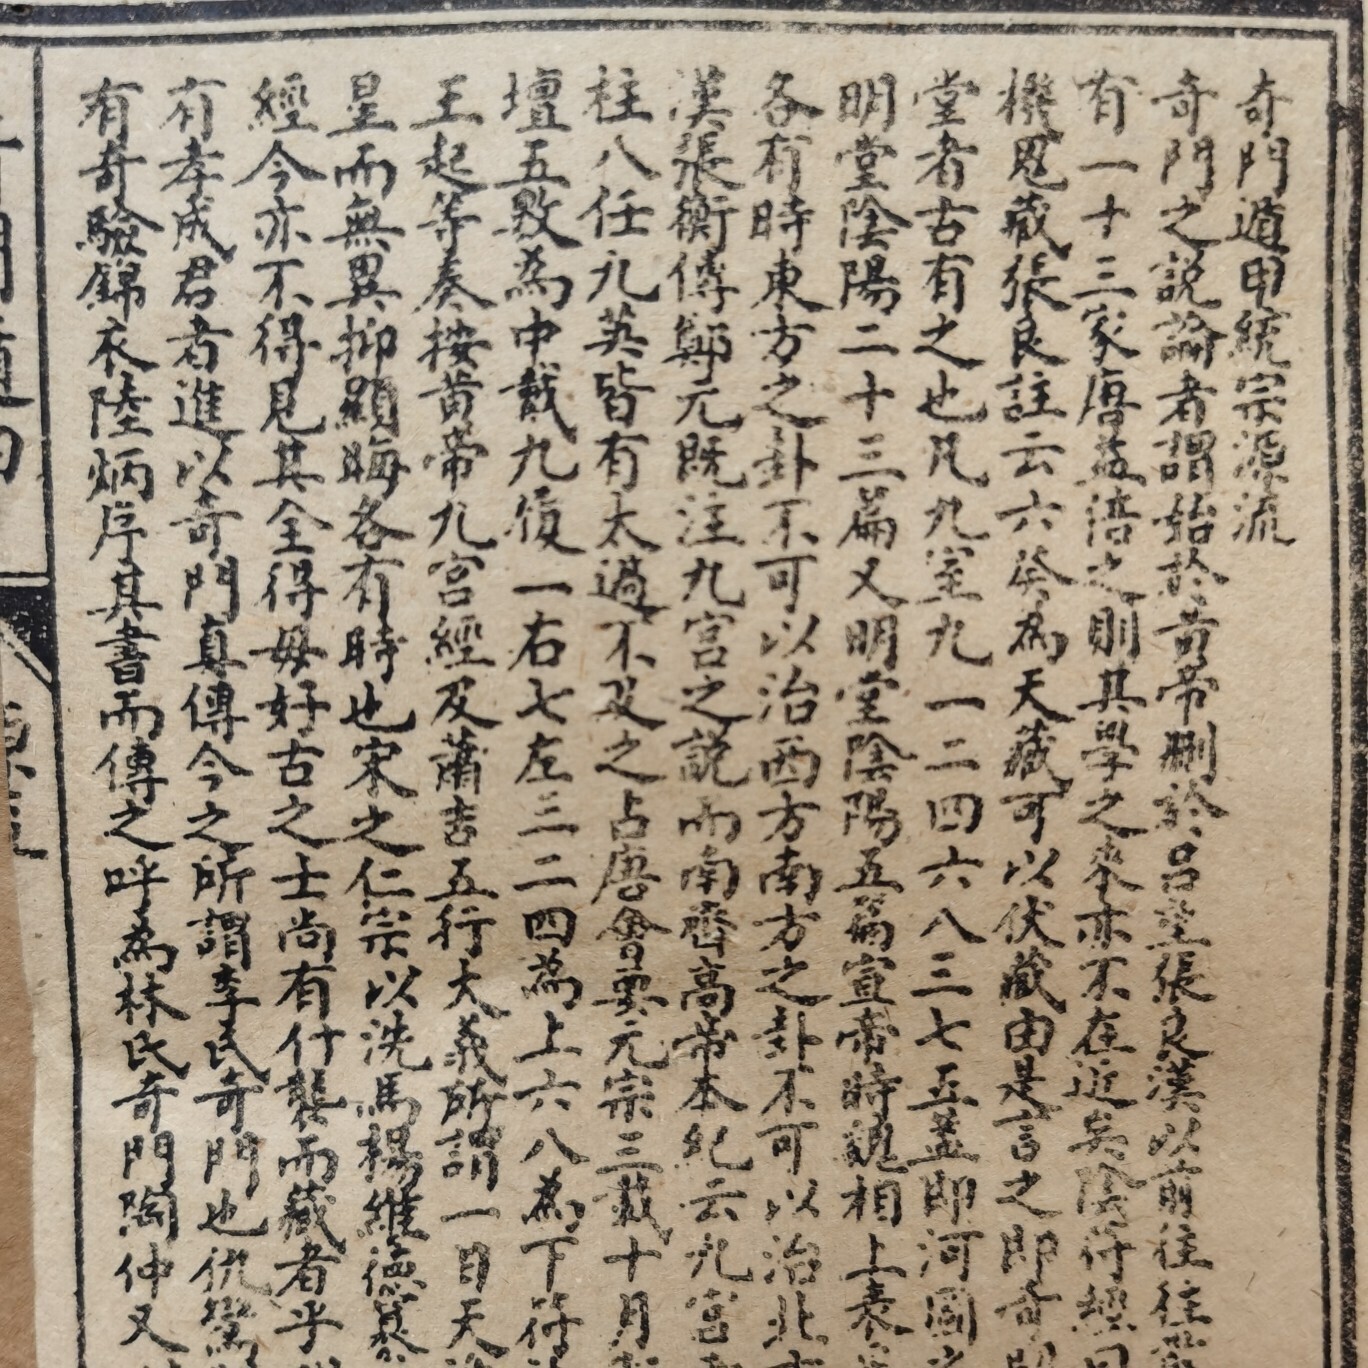 奇門遁甲統宗源流
奇門之説論者謂始於黄帝刪於吕望張良漢以前往往
有一十三家唐益倍之則其學之來亦不在近矣陰符經曰
機愳藏張良註云六癸為天藏可以伏藏由是言之即奇門
堂者古有之也凡九室九一二四六八三七五葢即河圖之
明堂陰陽二十三篇又明堂陰陽五篇宣帝時魏相上表
各有時東方之卦不可以治西方南方之卦不可以治北方
漢張衡傳鄭元既注九宫之説而南齊高帝本紀云九宫
柱八任九英皆有太過不及之占唐會要元宗三載十月
壇五數為中戴九履一右七左三二四為上六八為下符
王起等奏按黄帝九宫經及蕭吉五行大義所謂一曰天
星而無異抑顯晦各有時也宋之仁宗以洗馬楊維德纂
經今亦不得見其全得毋好古之士尚有什襲而藏者乎
有孝成君者進以奇門真傳今之所謂李氏奇門也仇鸞
有奇驗錦衣陸炳序其書而傳之呼為林氏奇門陶仲文